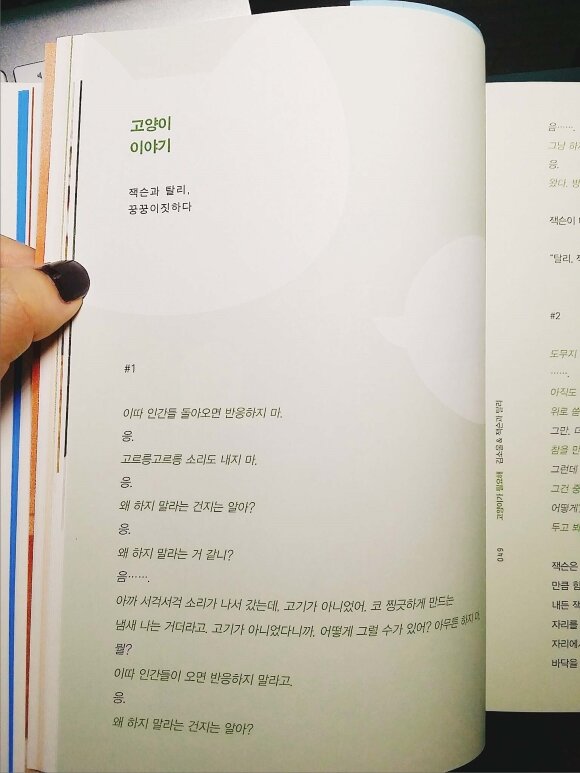 고양이
이야기
잭슨과 탈리,
꿍꿍이짓하다
#1
이따 인간들 돌아오면 반응하지 마.
응.
고르릉고르릉 소리도 내지 마.
응.
왜 하지 말라는 건지는 알아?
응.
왜 하지 말라는 거 같니?
음…….
아까 서걱서걱 소리가 나서 갔는데, 고기가 아니었어. 코 찡긋하게 만드는
냄새 나는 거더라고. 고기가 아니었다니까. 어떻게 그럴 수가 있어? 아무튼 하지 마.
뭘?
이따 인간들이 오면 반응하지 말라고.
응.
왜 하지 말라는 건지는 알아?
음…….
그냥 하
응.
왔다. 방
잭슨이
"탈리,
#2
도무지
…….
아직도
위로 쓸
그만.
참을 만
그런데
그건 중
어떻게
두고 봐
잭슨은
만큼 힘
내든 잭
자리를
자리에서
바닥을
고양이가 필요해 김소울 & 잭슨과 탈리
049